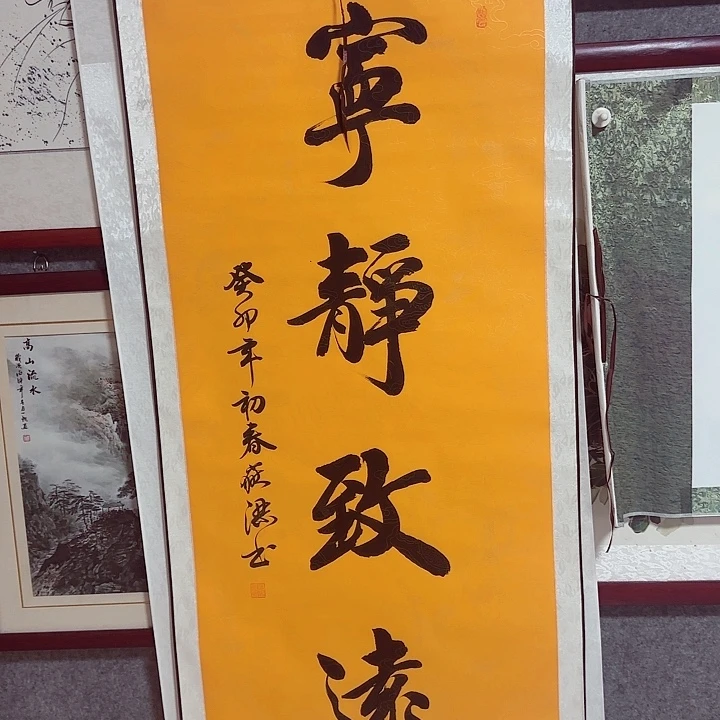 寧靜致遠
癸卯年初春 洪书
高山流水